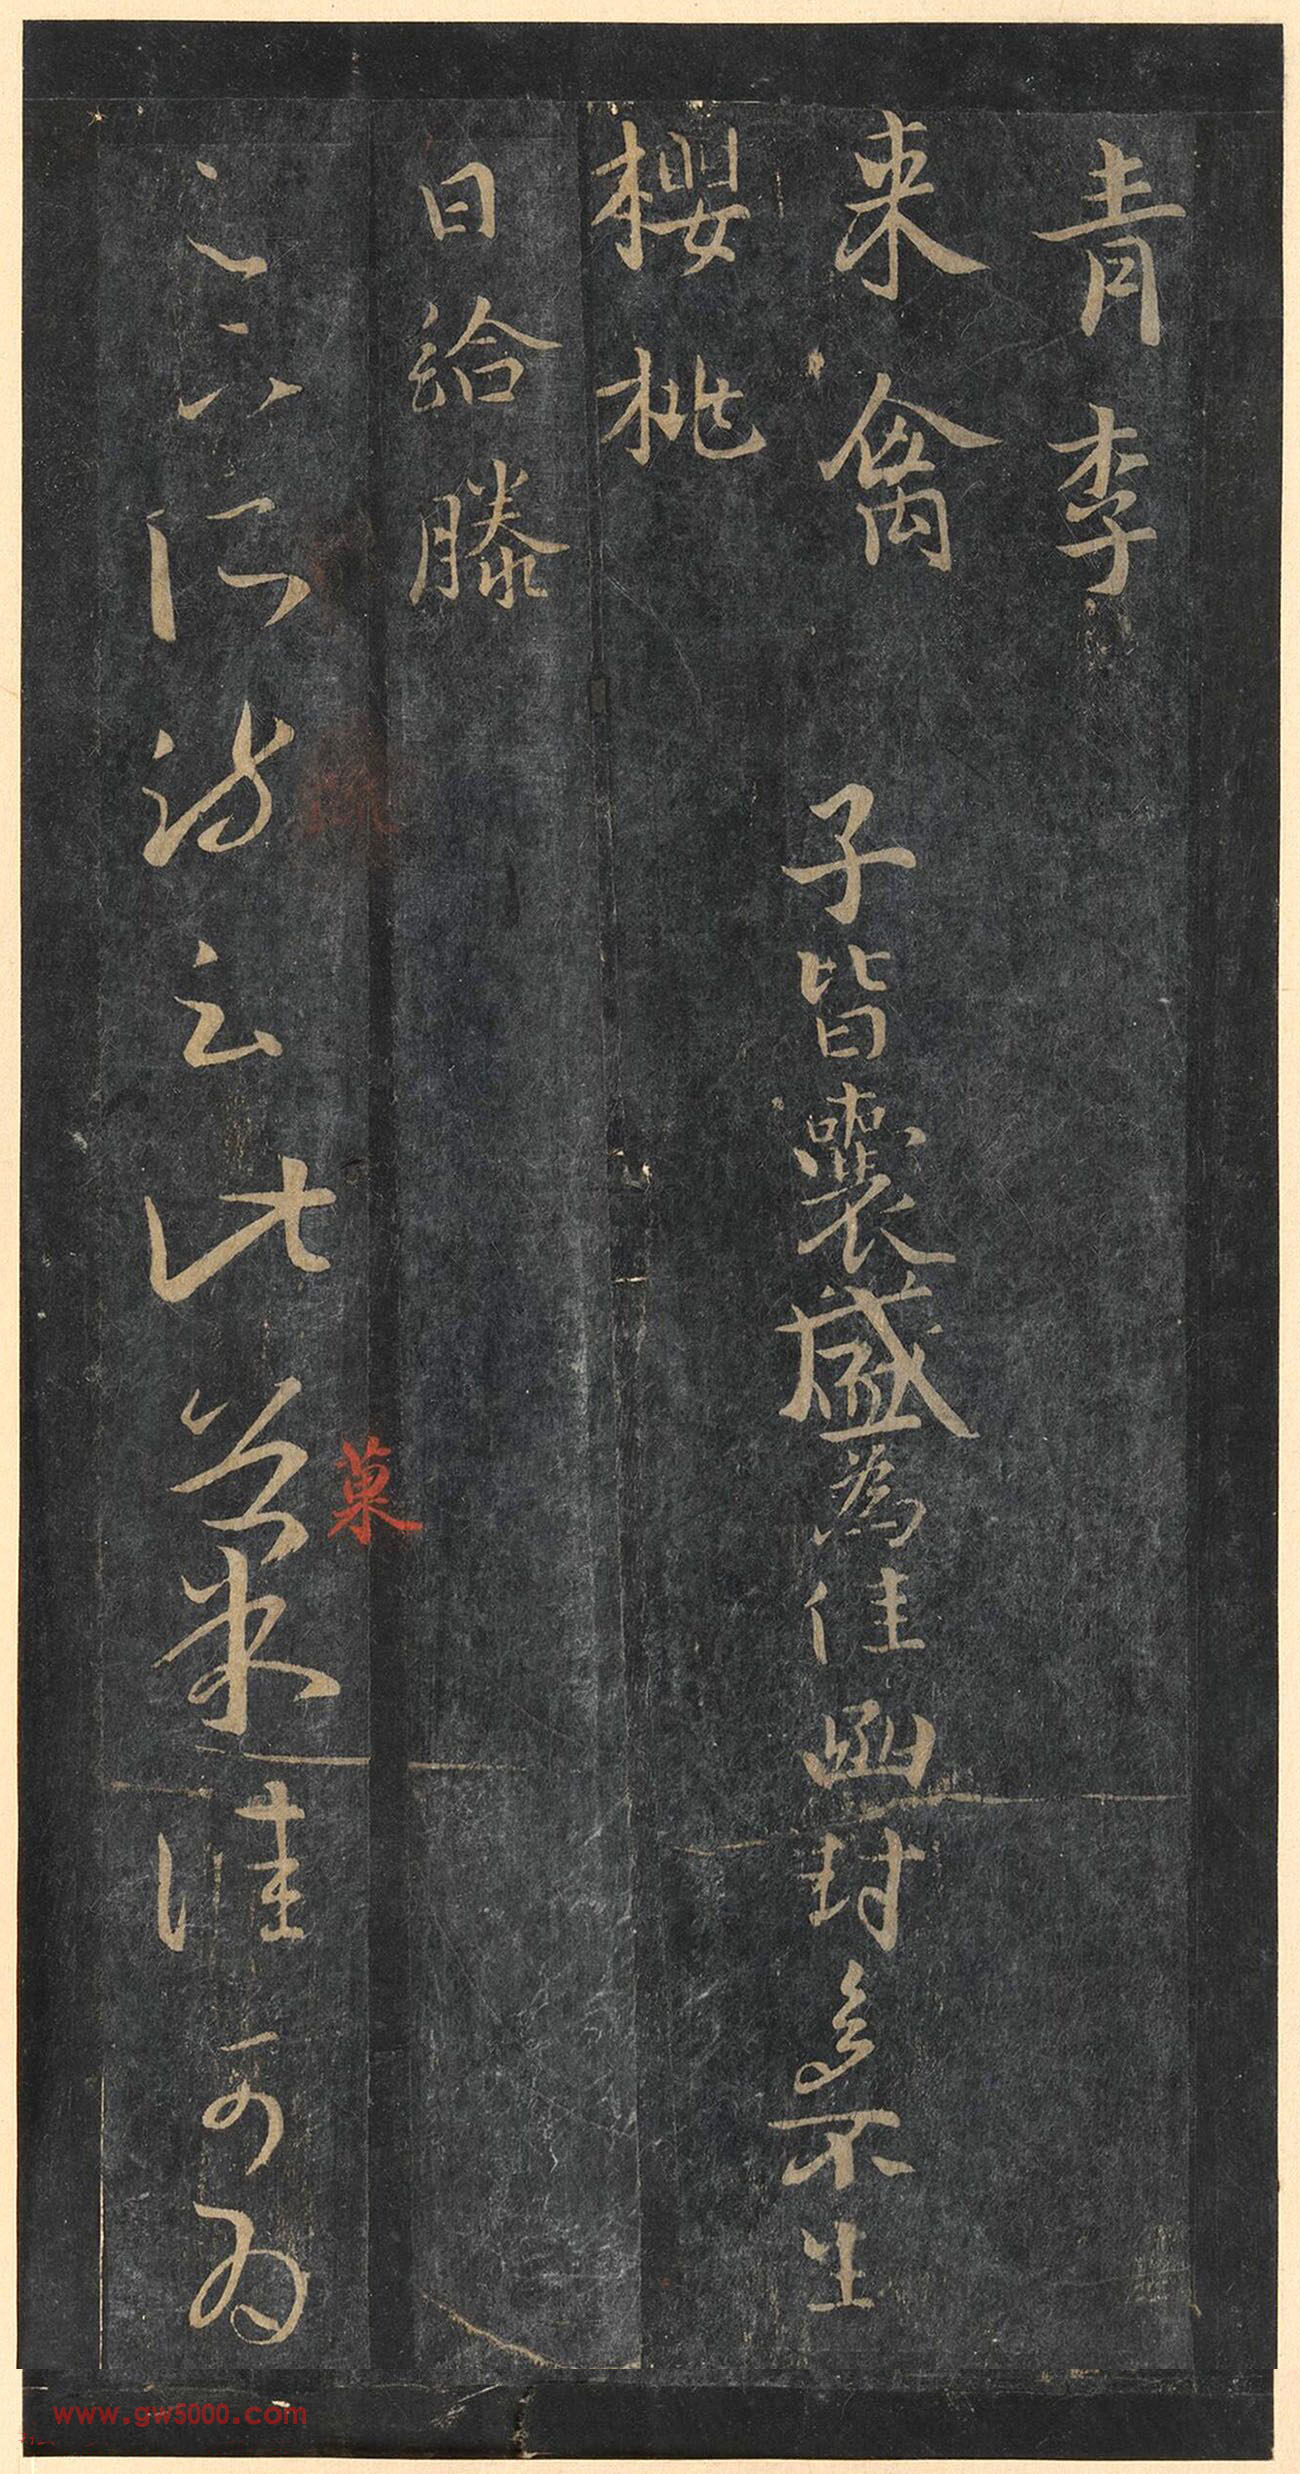 青李
来禽 子皆囊盛為佳函封多不生
櫻桃
日給滕
足下所疏云此菓佳可為
菓
www.gw5000.com